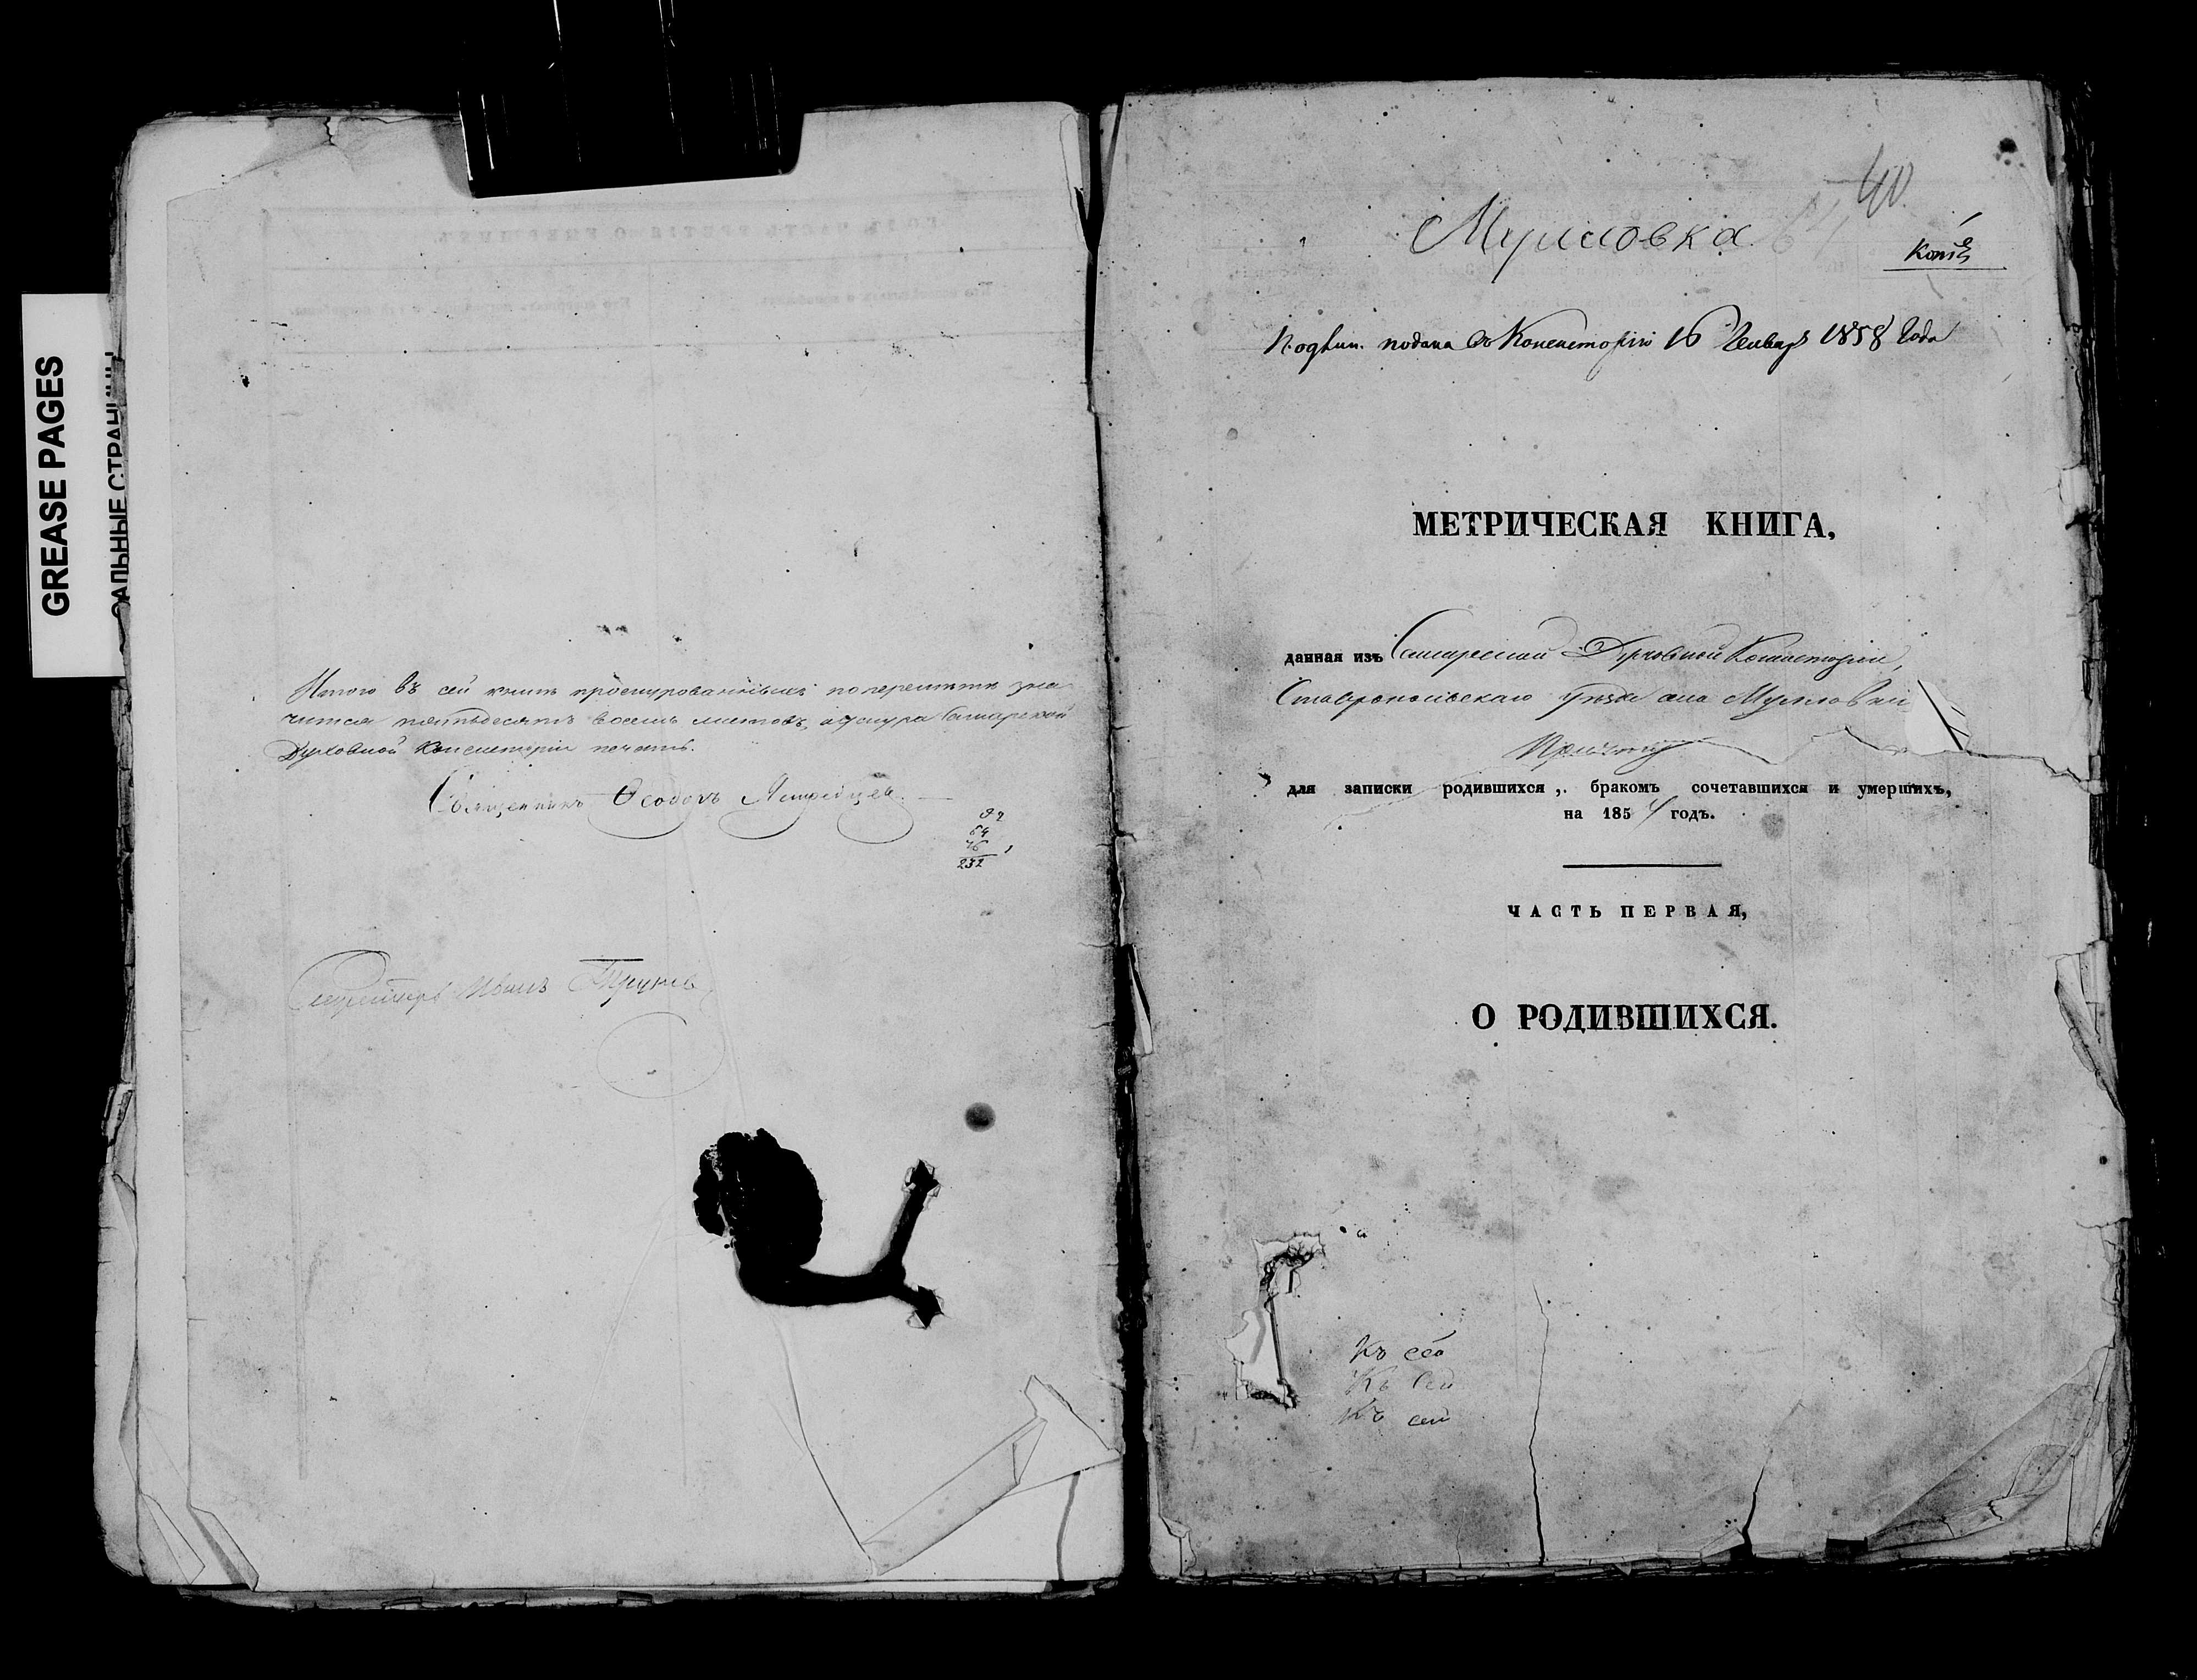 GREASE PAGES
САЛЬНЫЕ СТРАНИЦЫ
Итого въ сей книгѣ прошнурованныхъ зна-
чится пятьдесятъ восемь листовъ, Самарской
Духовной Консисторіи печать.
Священникъ Ѳеодоръ
64
76
232
Секретарь
40
Мулловка
Копія
Подлин. подана въ Консисторію 16 Генваря 1858 года
МЕТРИЧЕСКАЯ КНИГА,
данная изъ Самарской Духовной Консисторіи,
Ставропольскаго уѣзда села Мулловки
Причту
для записки родившихся, бракомъ сочетавшихся и умершихъ,
на 185 годъ.
ЧАСТЬ ПЕРВАЯ,
О РОДИВШИХСЯ.
Къ сей
Къ сей
Къ сей